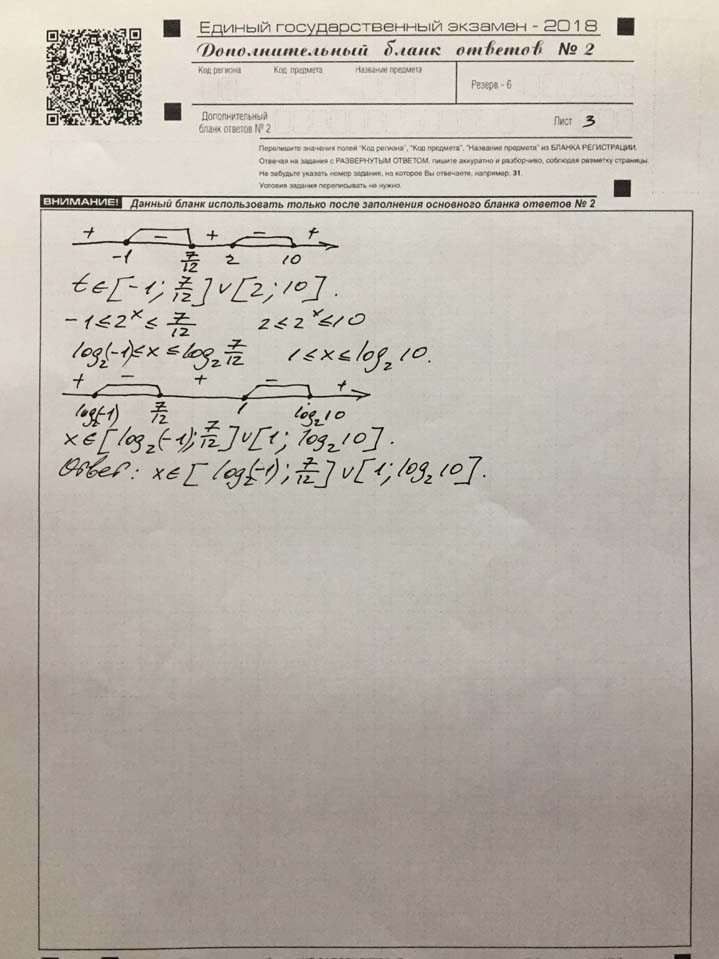 Единый государственный экзамен - 2018
Дополнительный бланк ответов № 2
Код региона Код предмета Название предмета
Резерв - 6
Дополнительный
бланк ответов № 2
Лист 3
Перепишите значения полей "Код региона", "Код предмета", "Название предмета" из БЛАНКА РЕГИСТРАЦИИ.
Отвечая на задания с РАЗВЕРНУТЫМ ОТВЕТОМ, пишите аккуратно и разборчиво, соблюдая разметку страницы.
Не забудьте указать номер задания, на которое Вы отвечаете, например, 31.
Условия задания переписывать не нужно.
ВНИМАНИЕ! Данный бланк использовать только после заполнения основного бланка ответов № 2
+ − + − +
-1 7/12 2 10
t ∈ [-1; 7/12] ∪ [2; 10].
-1 ≤ 2^x ≤ 7/12 2 ≤ 2^x ≤ 10
log₂(-1) ≤ x ≤ log₂ 7/12 1 ≤ x ≤ log₂ 10.
+ − + − +
log₂(-1) 7/12 1 log₂ 10
x ∈ [log₂(-1); 7/12] ∪ [1; log₂ 10].
Ответ: x ∈ [log₂(-1); 7/12] ∪ [1; log₂ 10].